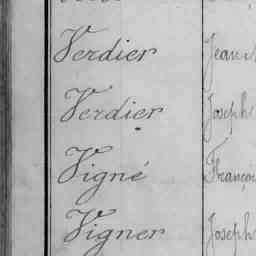 Verdier Jean
Verdier Joseph
Vigné Françoi
Vigner Joseph